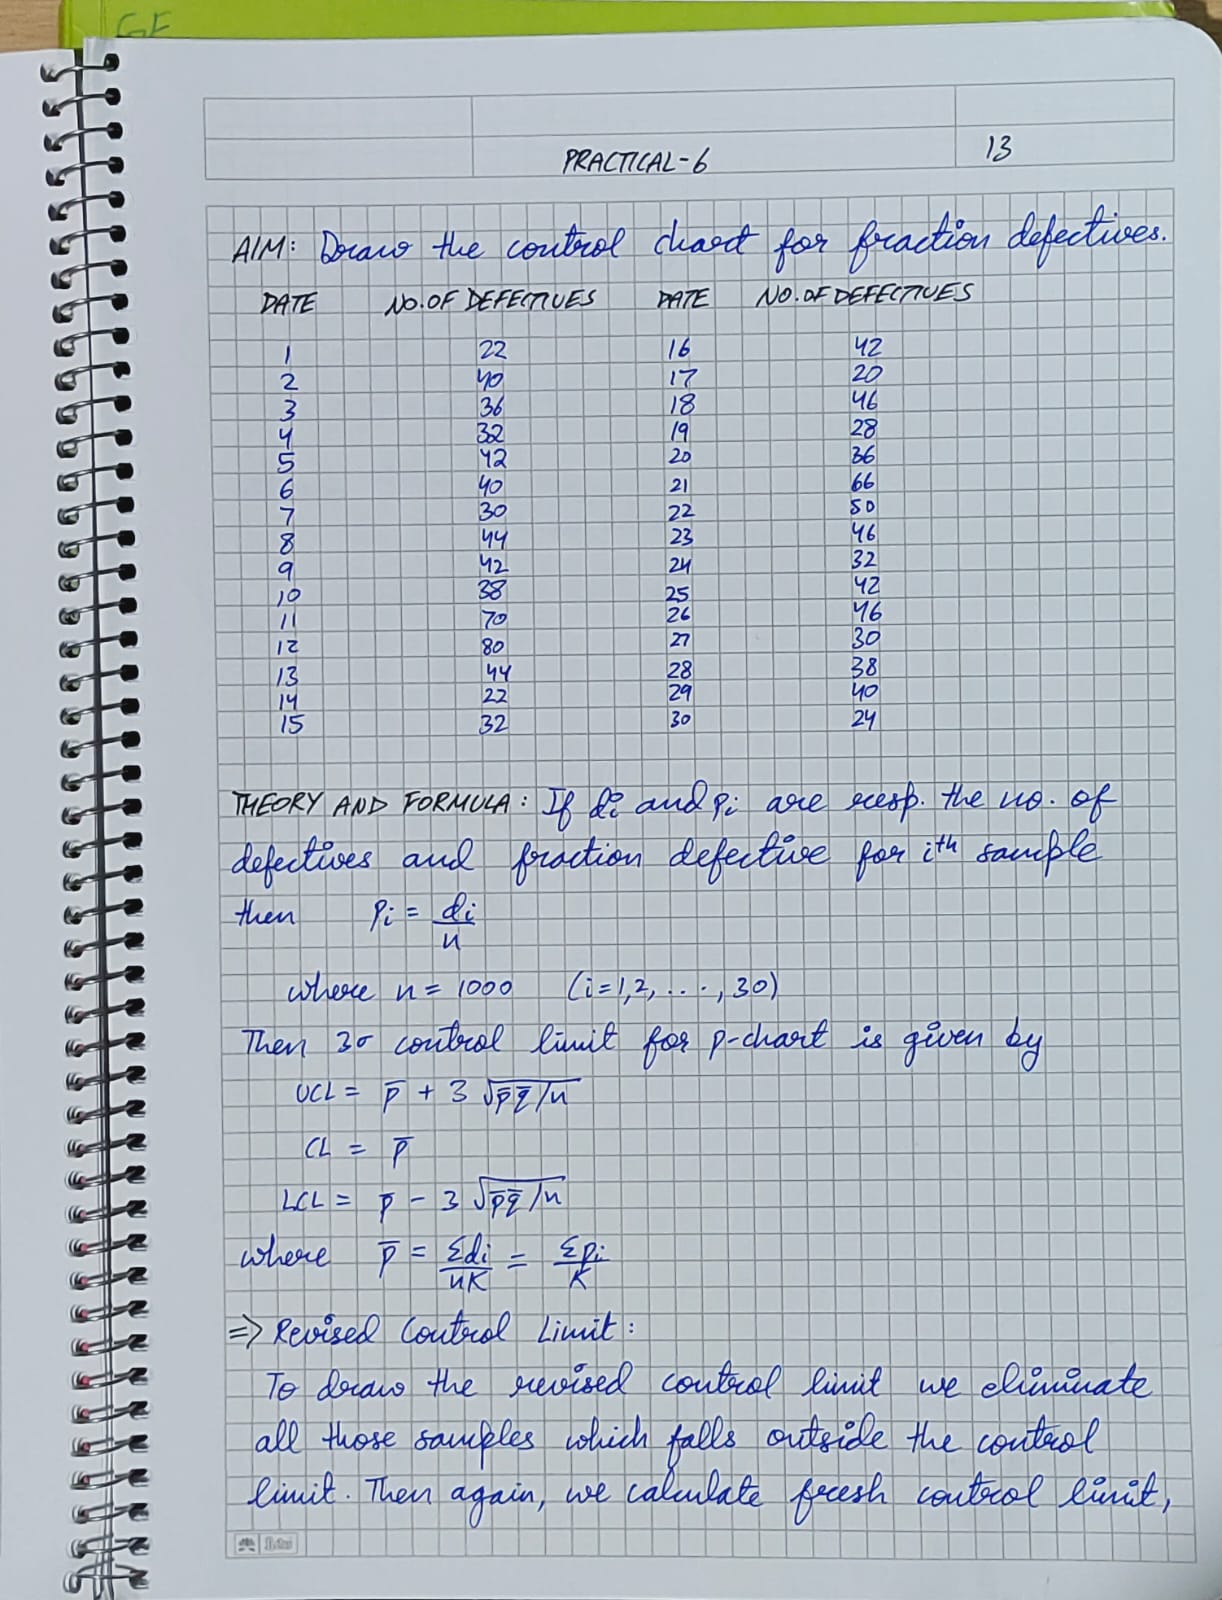 GE
PRACTICAL-6 13
AIM: Draw the control chart for fraction defectives.
DATE NO. OF DEFECTIVES DATE NO. OF DEFECTIVES
1 22 16 42
2 40 17 20
3 36 18 46
4 32 19 28
5 42 20 36
6 40 21 66
7 30 22 50
8 44 23 46
9 42 24 32
10 38 25 42
11 70 26 46
12 80 27 30
13 44 28 38
14 22 29 40
15 32 30 24
THEORY AND FORMULA: If di and pi are resp. the no. of
defectives and fraction defective for ith sample
then pi = di/n
where n = 1000 (i=1,2, ..., 30)
Then 3σ control limit for p-chart is given by
UCL = p̄ + 3 √p̄q̄/n
CL = p̄
LCL = p̄ - 3 √p̄q̄/n
where p̄ = Σdi/nK = Σpi/K
⇒ Revised Control Limit:
To draw the revised control limit we eliminate
all those samples which falls outside the control
limit. Then again, we calculate fresh control limit,